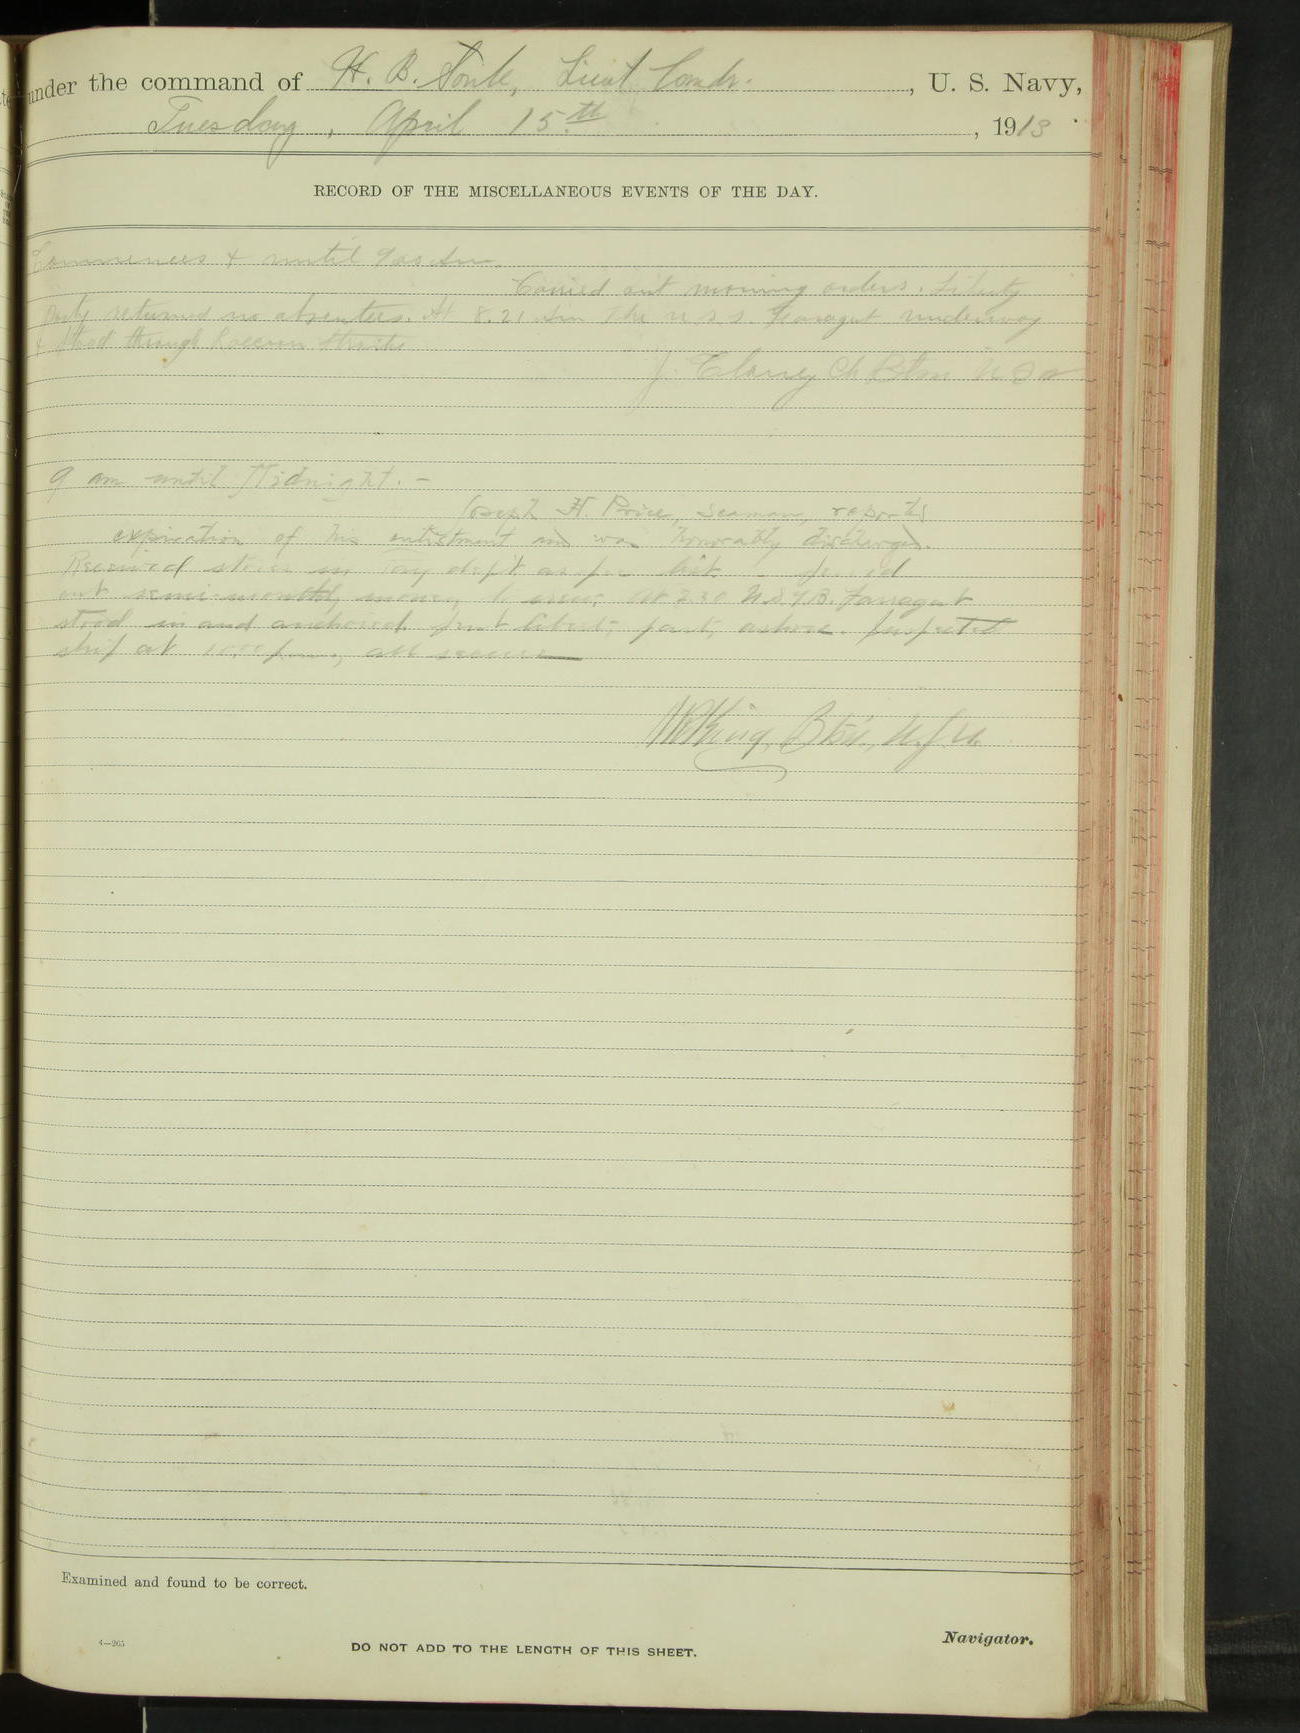 under the command of H. B. Soule, Lieut Comdr. , U. S. Navy,
Tuesday, April 15th , 1913
RECORD OF THE MISCELLANEOUS EVENTS OF THE DAY.
Commences & until 9 00 Am.
Carried out morning orders. Liberty
Party returned no absentees. At 8.21 Am The U.S.S. Farragut underway
& stood through Raccoon Straits
J. Clancy Ch Btsn U S N
9 am until Midnight. —
Joseph H. Price, Seaman, reports
expiration of his enlistment and was honorably discharged.
Received stores in Pay dep't as per list.
out semi-monthly money to crew. At 2.30 U.S.T.B. Farragut
stood in and anchored sent liberty party ashore. Inspected
ship at p.m., all secure
King, Btsn., U.S.N.
Examined and found to be correct.
4—265
DO NOT ADD TO THE LENGTH OF THIS SHEET.
Navigator.